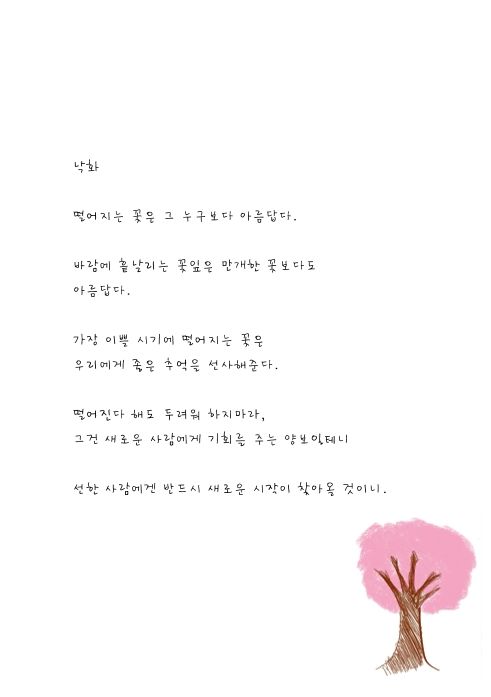 낙화
떨어지는 꽃은 그 누구보다 아름답다.
바람에 흩날리는 꽃잎은 만개한 꽃보다도
아름답다.
가장 이쁠 시기에 떨어지는 꽃은
우리에게 좋은 추억을 선사해준다.
떨어진다 해도 두려워 하지마라,
그건 새로운 사람에게 기회를 주는 양보일테니
선한 사람에겐 반드시 새로운 시작이 찾아올 것이니.